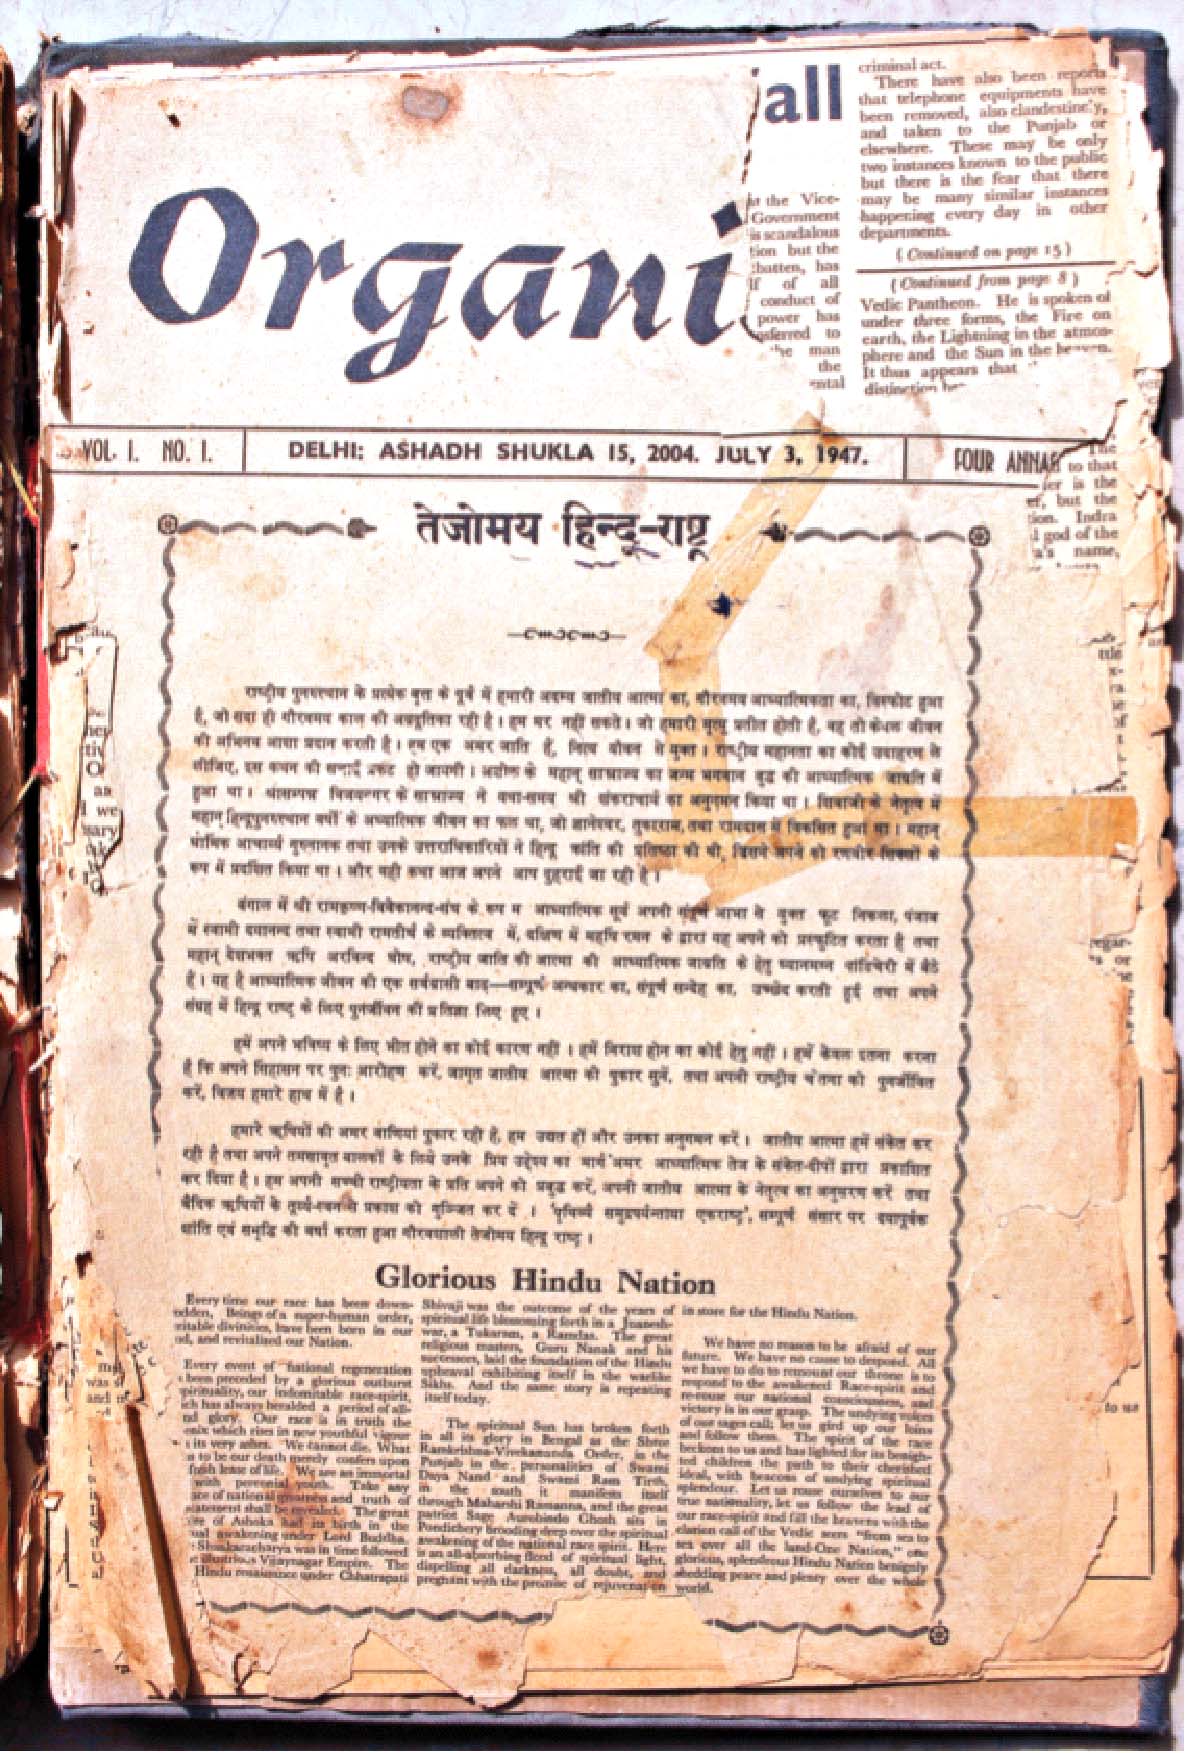 all
criminal act.
There have also been reports
that telephone equipments have
been removed, also clandestinely,
and taken to the Punjab or
elsewhere. These may be only
two instances known to the public
but there is the fear that there
may be many similar instances
happening every day in other
departments.
( Continued on page 15 )
( Continued from page 8 )
Vedic Pantheon. He is spoken of
under three forms, the Fire on
earth, the Lightning in the atmos-
phere and the Sun in the heaven.
It thus appears that
the Vice-
Government
is scandalous
but the
has
of all
conduct of
power has
to
man
the
Organi
VOL. I. NO. I.
DELHI: ASHADH SHUKLA 15, 2004. JULY 3, 1947.
FOUR ANNAS
to that
is the
but the
Indra
god of the
name,
तेजोमय हिन्दू-राष्ट्र
राष्ट्रीय पुनरुत्थान के प्रत्येक वृत्त के पूर्व में हमारी अदम्य जातीय आत्मा का, गौरवमय आध्यात्मिकता का, विस्फोट हुआ
है, जो सदा ही गौरवमय काल की अग्रदूतिका रही है। हम मर नहीं सकते। जो हमारी मृत्यु प्रतीत होती है, वह तो केवल जीवन
की अभिनव आशा प्रदान करती है। हम एक अमर जाति हैं, नित्य यौवन से युक्त। राष्ट्रीय महानता का कोई उदाहरण ले
लीजिए, इस कथन की सचाई प्रकट हो जायगी। अशोक के महान् साम्राज्य का जन्म भगवान बुद्ध की आध्यात्मिक जागृति में
हुआ था। विजयनगर के साम्राज्य ने यथा-समय श्री शंकराचार्य का अनुगमन किया था। शिवाजी के नेतृत्व में
महान् हिन्दूपुनरुत्थान वर्षों के अध्यात्मिक जीवन का फल था, जो ज्ञानेश्वर, तुकाराम, तथा रामदास में विकसित हुआ था। महान्
धार्मिक आचार्य्य गुरुनानक तथा उनके उत्तराधिकारियों ने हिन्दू क्रांति की प्रतिष्ठा की थी, जिसने अपने को रणवीर सिक्खों के
रूप में प्रदर्शित किया था। और वही कथा आज अपने आप दुहराई जा रही है।
बंगाल में श्री रामकृष्ण-विवेकानन्द-संघ के रूप में आध्यात्मिक सूर्य अपनी संपूर्ण आभा से युक्त फूट निकला, पंजाब
में स्वामी दयानन्द तथा स्वामी रामतीर्थ के व्यक्तित्व में, दक्षिण में महर्षि रमन के द्वारा वह अपने को प्रस्फुटित करता है तथा
महान् देशभक्त ऋषि अरविन्द घोष, राष्ट्रीय जाति की आत्मा की आध्यात्मिक जागृति के हेतु ध्यानमग्न पांडिचेरी में बैठे
हैं। यह है आध्यात्मिक जीवन की एक सर्वग्रासी बाढ़—सम्पूर्ण अन्धकार का, संपूर्ण सन्देह का, उच्छेद करती हुई तथा अपने
संग्रह में हिन्दू राष्ट्र के लिए पुनर्जीवन की प्रतिज्ञा लिए हुए।
हमें अपने भविष्य के लिए भीत होने का कोई कारण नहीं। हमें निराश होने का कोई हेतु नहीं। हमें केवल इतना करना
है कि अपने सिंहासन पर पुनः आरोहण करें, जागृत जातीय आत्मा की पुकार सुनें, तथा अपनी राष्ट्रीय चेतना को पुनर्जीवित
करें, विजय हमारे हाथ में है।
हमारे ऋषियों की अमर वाणियां पुकार रही हैं, हम उद्यत हों और उनका अनुगमन करें। जातीय आत्मा हमें संकेत कर
रही है तथा अपने तमसावृत बालकों के लिये उनके प्रिय उद्देश्य का मार्ग अमर आध्यात्मिक तेज के संकेत-दीपों द्वारा प्रकाशित
कर दिया है। हम अपनी सच्ची राष्ट्रीयता के प्रति अपने को प्रबुद्ध करें, अपनी जातीय आत्मा के नेतृत्व का अनुसरण करें तथा
वैदिक ऋषियों के तूर्य्य-स्वन से प्रकाश को गुञ्जित कर दें। एकराष्ट्र', सम्पूर्ण संसार पर दयापूर्वक
शांति एवं समृद्धि की वर्षा करता हुआ गौरवशाली तेजोमय हिन्दू राष्ट्र।
Glorious Hindu Nation
Every time our race has been down-
Beings of a super-human order,
divinities, have been born in our
and revitalized our Nation.
Every event of national regeneration
been preceded by a glorious outburst
spirituality, our indomitable race-spirit,
which has always heralded a period of all-
glory. Our race is in truth the
which rises in new youthful vigour
its very ashes. We cannot die. What
to be our death merely confers upon
fresh lease of life. We are an immortal
with perennial youth. Take any
of national greatness and truth of
statement shall be revealed. The great
of Ashoka had its birth in the
awakening under Lord Buddha.
Shankaracharya was in time followed
illustrious Vijaynagar Empire. The
Hindu renaissance under Chhatrapati
Shivaji was the outcome of the years of
spiritual life blossoming forth in a Jnanesh-
war, a Tukaram, a Ramdas. The great
religious masters, Guru Nanak and his
successors, laid the foundation of the Hindu
upheaval exhibiting itself in the warlike
Sikhs. And the same story is repeating
itself today.
The spiritual Sun has broken forth
in all its glory in Bengal as the Shree
Ramkrishna-Vivekananda Order, in the
Punjab in the personalities of Swami
Daya Nand and Swami Ram Tirth,
in the south it manifests itself
through Maharshi Ramanna, and the great
patriot Sage Aurobindo Ghosh sits in
Pondichery brooding deep over the spiritual
awakening of the national race spirit. Here
is an all-absorbing flood of spiritual light,
dispelling all darkness, all doubt, and
pregnant with the promise of rejuvenation
in store for the Hindu Nation.
We have no reason to be afraid of our
future. We have no cause to despond. All
we have to do is to remount our throne is to
respond to the awakened Race-spirit and
re-rouse our national consciousness, and
victory is in our grasp. The undying voices
of our sages call; let us gird up our loins
and follow them. The spirit of the race
beckons to us and has lighted for its benigh-
ted children the path to their cherished
ideal, with beacons of undying spiritual
splendour. Let us rouse ourselves to our
true nationality, let us follow the lead of
our race-spirit and fill the heavens with the
clarion call of the Vedic seers "from sea to
sea over all the land-One Nation," one
glorious, splendrous Hindu Nation benignly
shedding peace and plenty over the whole
world.